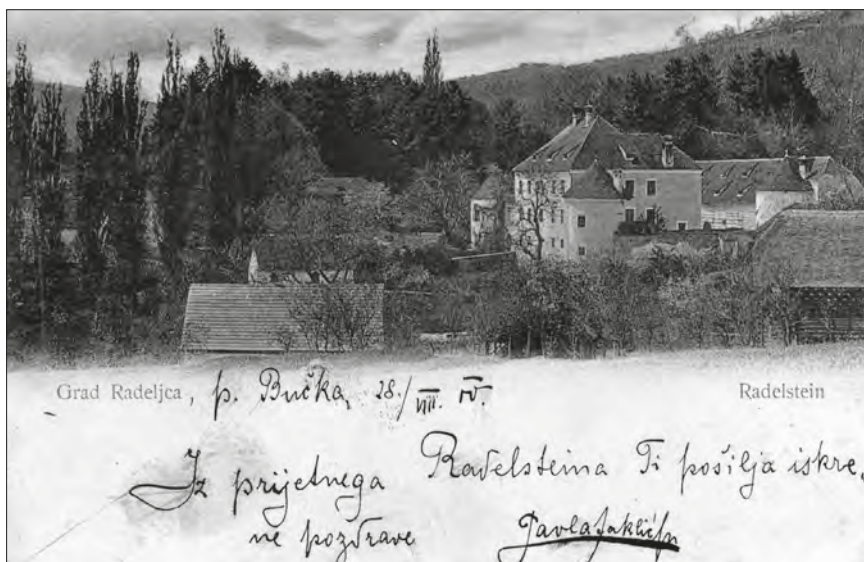 Grad Radeljca, p. Bučka, 28./VIII. IV. Radelstein
Iz prijetnega Radelsteina Ti pošilja iskre,
ne pozdrave